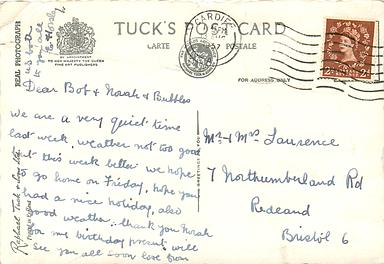 TUCK'S POST CARD
CARTE POSTALE
CARDIFF
1957
BY APPOINTMENT
TO HER MAJESTY THE QUEEN
FINE ART PUBLISHERS
FOR ADDRESS ONLY
REAL PHOTOGRAPH
Raphael Tuck & Sons Ltd.
us both
to you all
Dear Bob & Norah & Bubbles
We are a very quiet time
last week, weather not too good
at this week better we hope
to go home on Friday, hope you
had a nice holiday, also
good weather. thank you Norah
for my birthday present will
see you all soon love from
Mr & Mrs Laurence
7 Northumberland Rd
Redland
Bristol 6